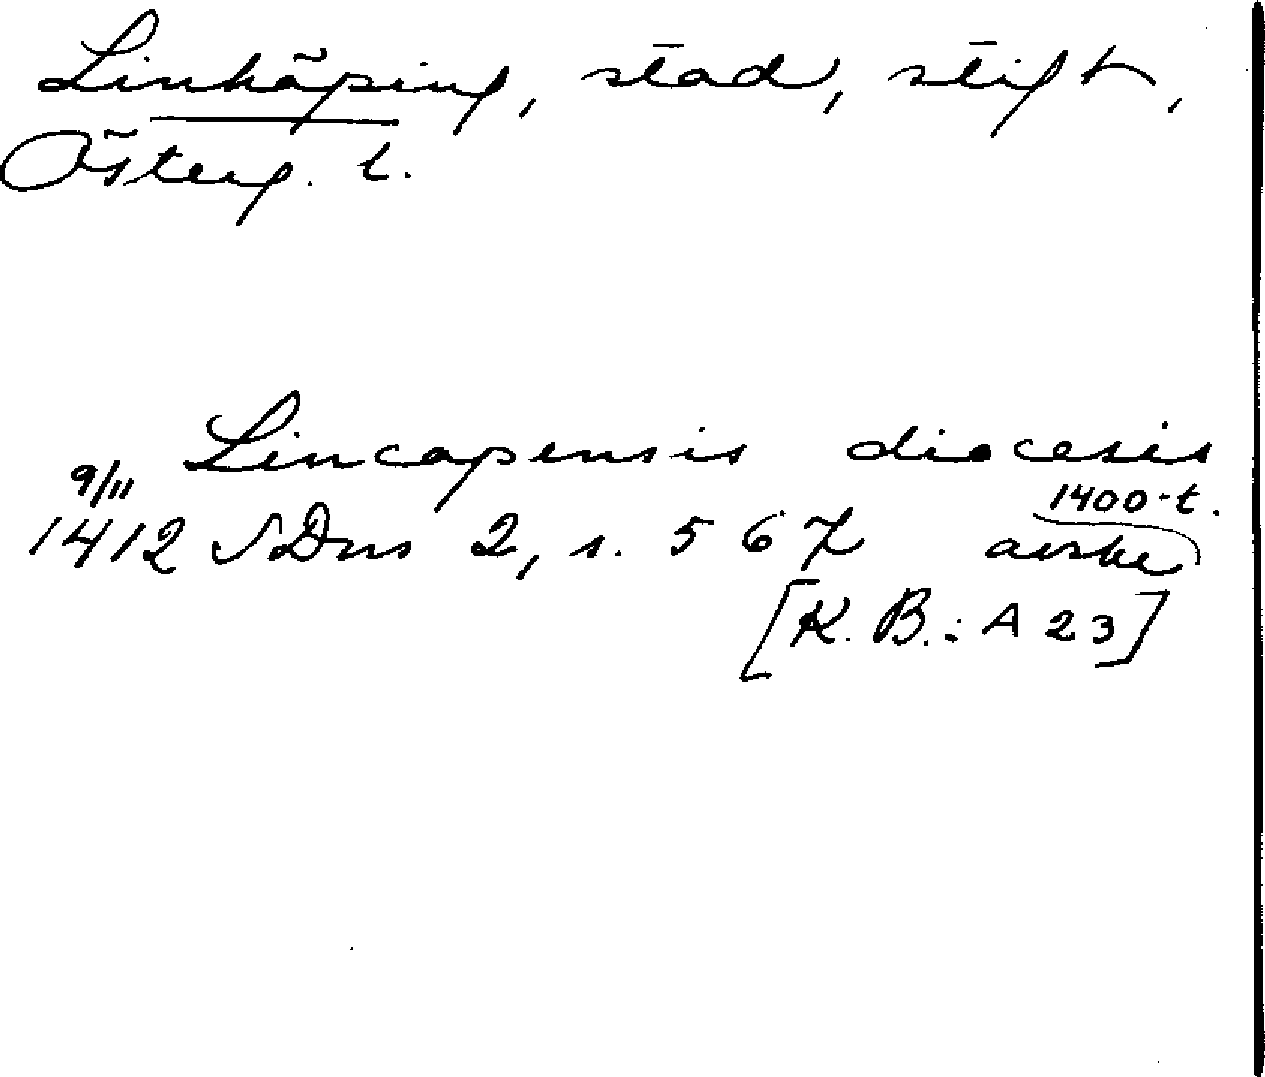 Linköping, stad, stift,
Österg. l.
Lincopensis diocesis
9/11
1400-t.
1412 SDns 2, s. 567 avskr
[K. B.: A 23]